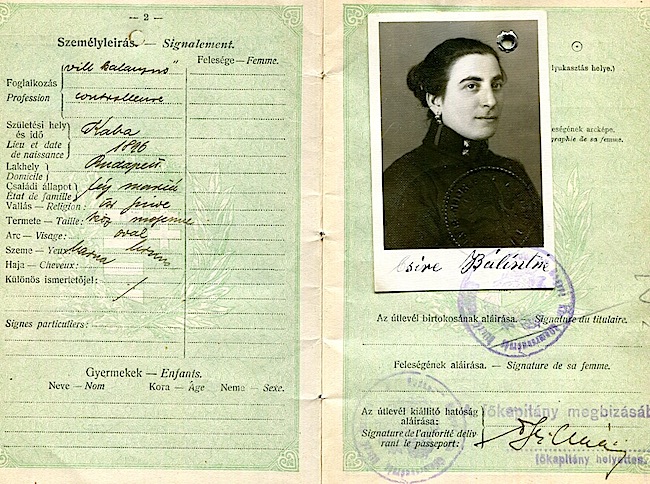 — 2 —
Személyleirás. — Signalement.
Felesége — Femme.
Foglalkozás
Profession
controlleure
Születési hely
és idő
Lieu et date
de naissance
Kaba
1896
Lakhely
Domicile
Budapest
Családi állapot
État de famille
férj mariée
Vallás — Religion:
Termete — Taille:
köz moyenne
Arc — Visage:
oval
Szeme — Yeux:
barna
Haja — Cheveux:
Különös ismertetőjel:
/
Signes particuliers:
Gyermekek — Enfants.
Neve — Nom Kora — Âge Neme — Sexe.
lyukasztás helye.)
eségének arcképe.
graphie de sa femme.
Bálintné
Az útlevél birtokosának aláirása. — Signature du titulaire.
Feleségének aláirása. — Signature de sa femme.
Az útlevél kiállitó hatóság
aláirása:
Signature de l'autorité déliv
rant le passeport:
főkapitány megbizásáb
főkapitány helyettes.